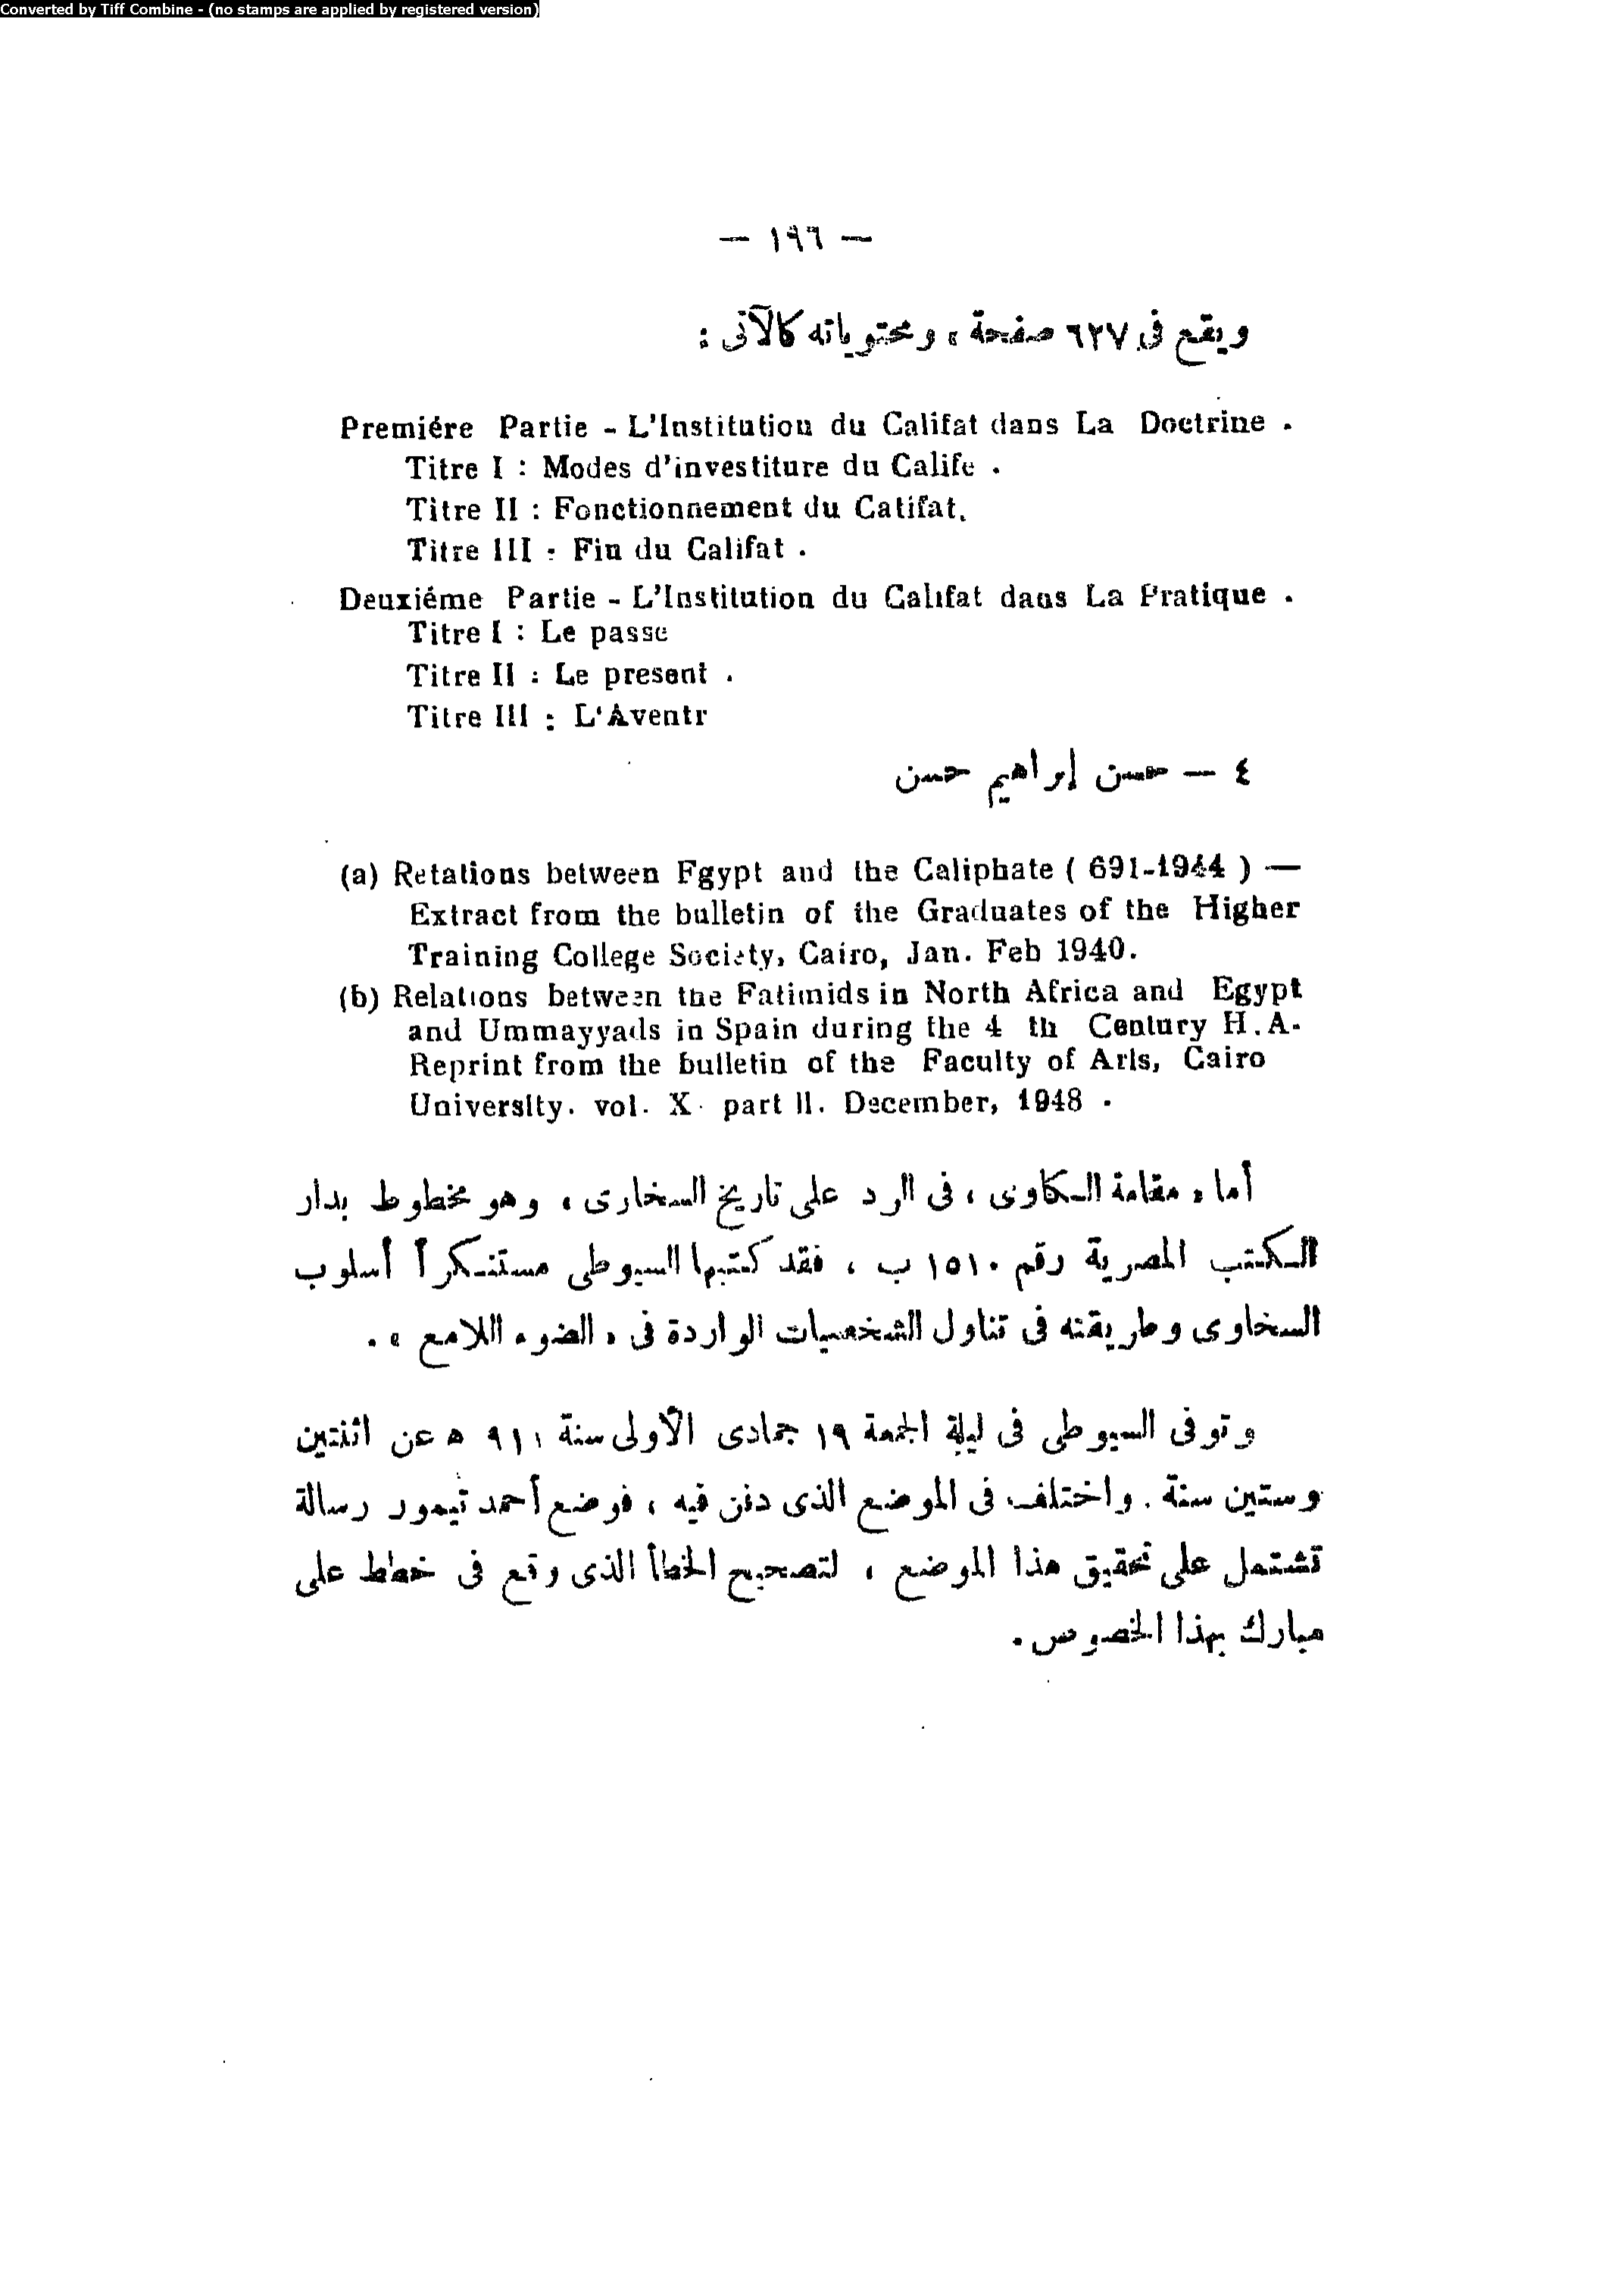 Converted by Tiff Combine - (no stamps are applied by registered version)
— ١٩٦ —
ويقع فى ٦٢٧ صفحة ، ومحتوياته كالآتى :
Premiére Partie - L'Institution du Califat dans La Doctrine .
Titre I : Modes d'investiture du Calife .
Titre II : Fonctionnement du Catifat.
Titre III : Fin du Califat .
Deuxiéme Partie - L'Institution du Califat dans La Pratique .
Titre I : Le passe
Titre II : Le present .
Titre III : L'Aventr
٤ — حسن إبراهيم حسن
(a) Retations between Fgypt and the Caliphate ( 691-1944 ) —
Extract from the bulletin of the Graduates of the Higher
Training College Society, Cairo, Jan. Feb 1940.
(b) Relations between the Fatimids in North Africa and Egypt
and Ummayyads in Spain during the 4 th Century H.A.
Reprint from the bulletin of the Faculty of Arls, Cairo
University. vol. X. part II. December, 1948 .
أما « مقامة الكاوى ، فى الرد على تاريخ السخارى » وهو مخطوط بدار
الكتب المصرية رقم ١٥١٠ ب ، فقد كتبها السيوطى مستنكراً أسلوب
السخاوى وطريقته فى تناول الشخصيات الواردة فى « الضوء اللامع » .
وتوفى السيوطى فى ليلة الجمعة ١٩ جمادى الأولى سنة ٩١١ ه عن اثنتين
وستين سنة . واختلف فى الموضع الذى دفن فيه ، فوضع أحمد تيمور رسالة
تشتمل على تحقيق هذا الموضع ، لتصحيح الخطأ الذى وقع فى خطط على
مبارك بهذا الخصوص .